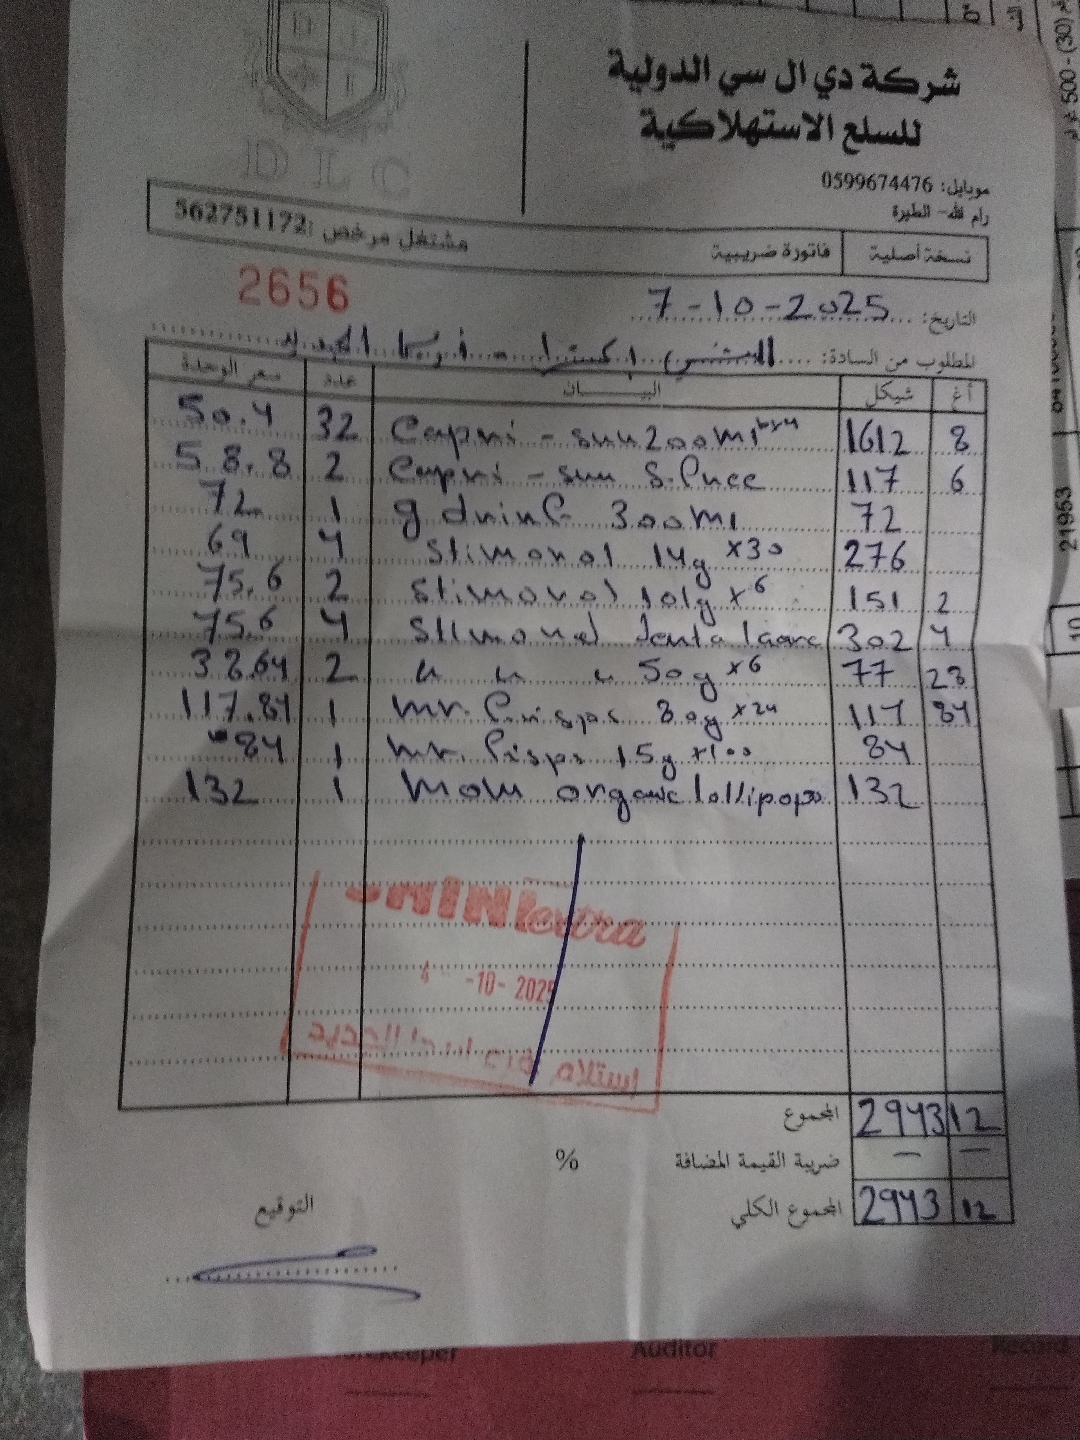 DLC
شركة دي ال سي الدولية
للسلع الاستهلاكية
موبايل: 0599674476
رام لله- الطيرة
نسخة أصلية فاتورة ضريبية مشتغل مرخص: 562751172
2656
التاريخ: 7-10-2025
المطلوب من السادة: اكسترا
أغ شيكل البيـــــان عدد سعر الوحدة
50.4 32 Capri-sun 200ml 1612 8
58.8 2 Capri-sun 117 6
72 1 g drink 300ml 72
69 4 Stimorol 14g x30 276
75.6 2 Stimorol 101g x6 151 2
75.6 4 Stimorol 302 4
38.64 2 50g x6 77 28
117.84 1 Mr. Crisps 80g x24 117 84
84 1 Mr. Crisps 15g x100 84
132 1 Mom organic lollipops 132
MINI extra
4 -10- 2025
استلام
المجموع 2943 12
ضريبة القيمة المضافة % — —
المجموع الكلي 2943 12
التوقيع
Auditor
Record
21953
10